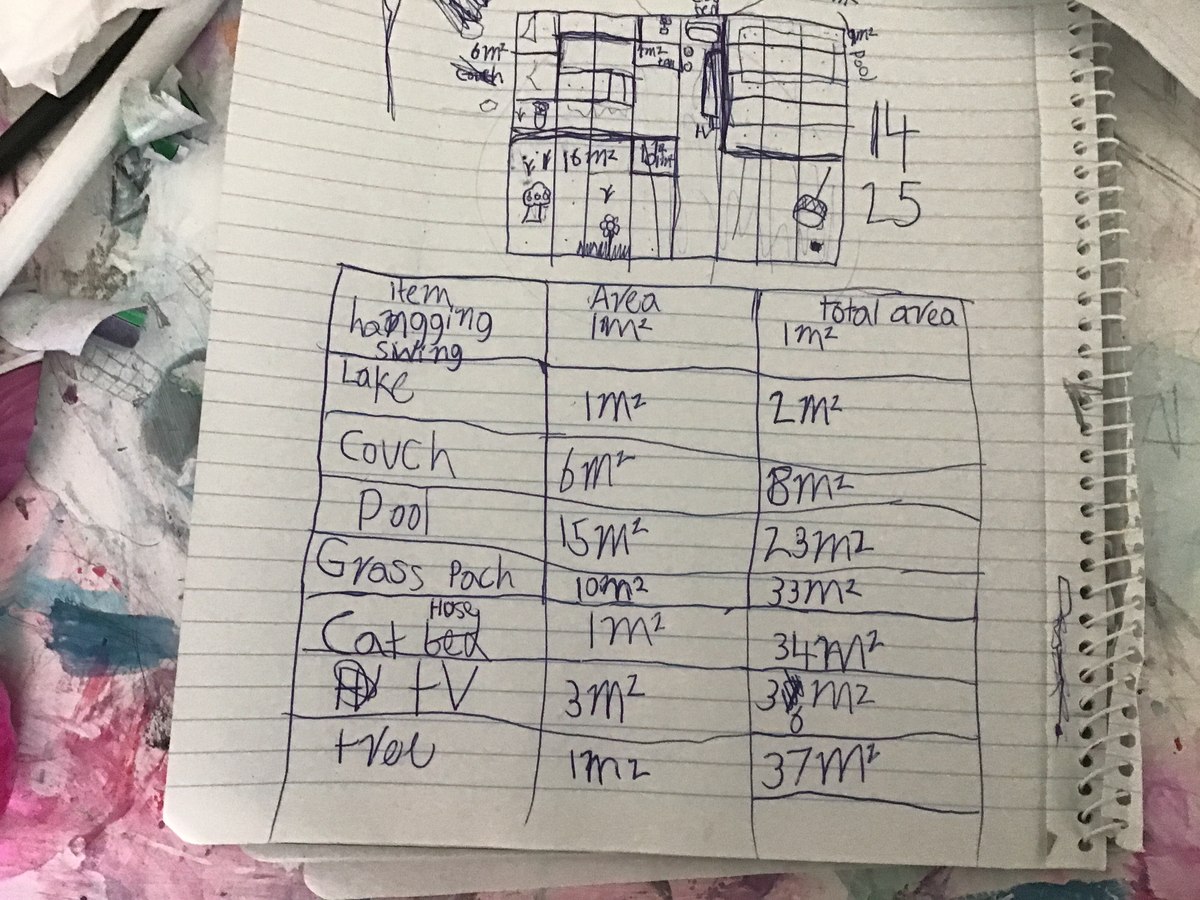 6m²
couch
1m²
TV
16 m²
14
25
item
Area
total area
hangging
swing
1m²
1m²
Lake
1m²
2m²
Couch
6m²
8m²
Pool
15m²
23m²
Grass Pach
10m²
33m²
Hose
Cat bed
1m²
34m²
tV
3m²
1m2
37m²